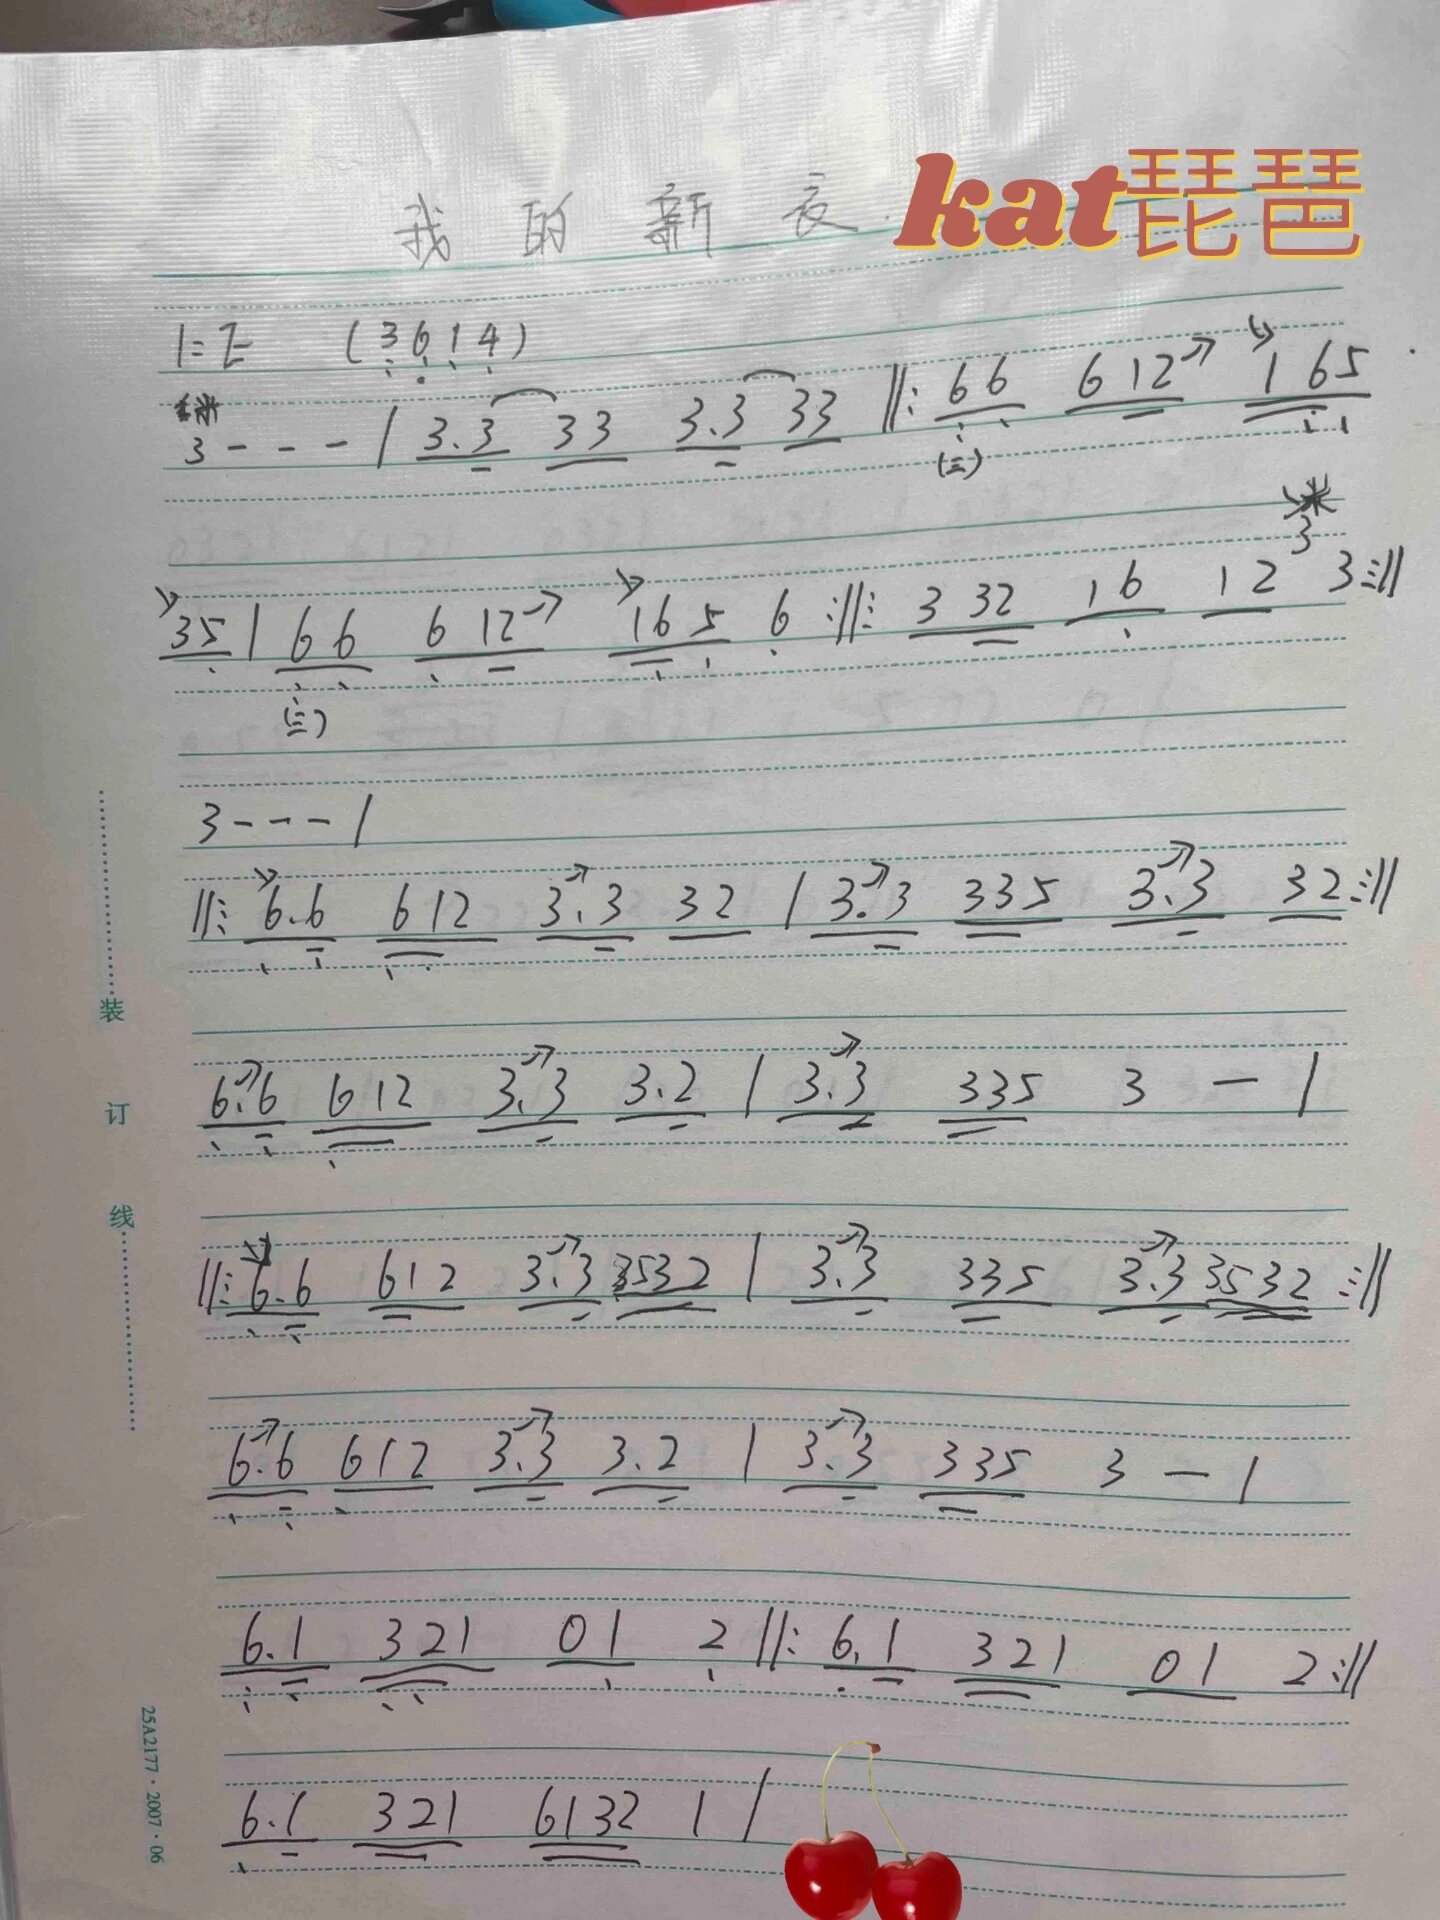 我的新衣
kat琵琶
1=E (3 6 1 4)
3 - - - | 3.3 33 3.3 33 ‖: 66 612 165
(三)
35 | 66 612 165 6 :‖: 3 32 16 12 3 3 :‖
(三)
3 - - - |
‖: 6.6 612 3.3 32 | 3.3 335 3.3 32 :‖
6.6 612 3.3 3.2 | 3.3 335 3 - |
‖: 6.6 612 3.3 3532 | 3.3 335 3.3 3532 :‖
6.6 612 3.3 3.2 | 3.3 335 3 - |
6.1 321 01 2 ‖: 6.1 321 01 2 :‖
6.1 321 6132 1 |
装
订
线
25A2177·2007·06